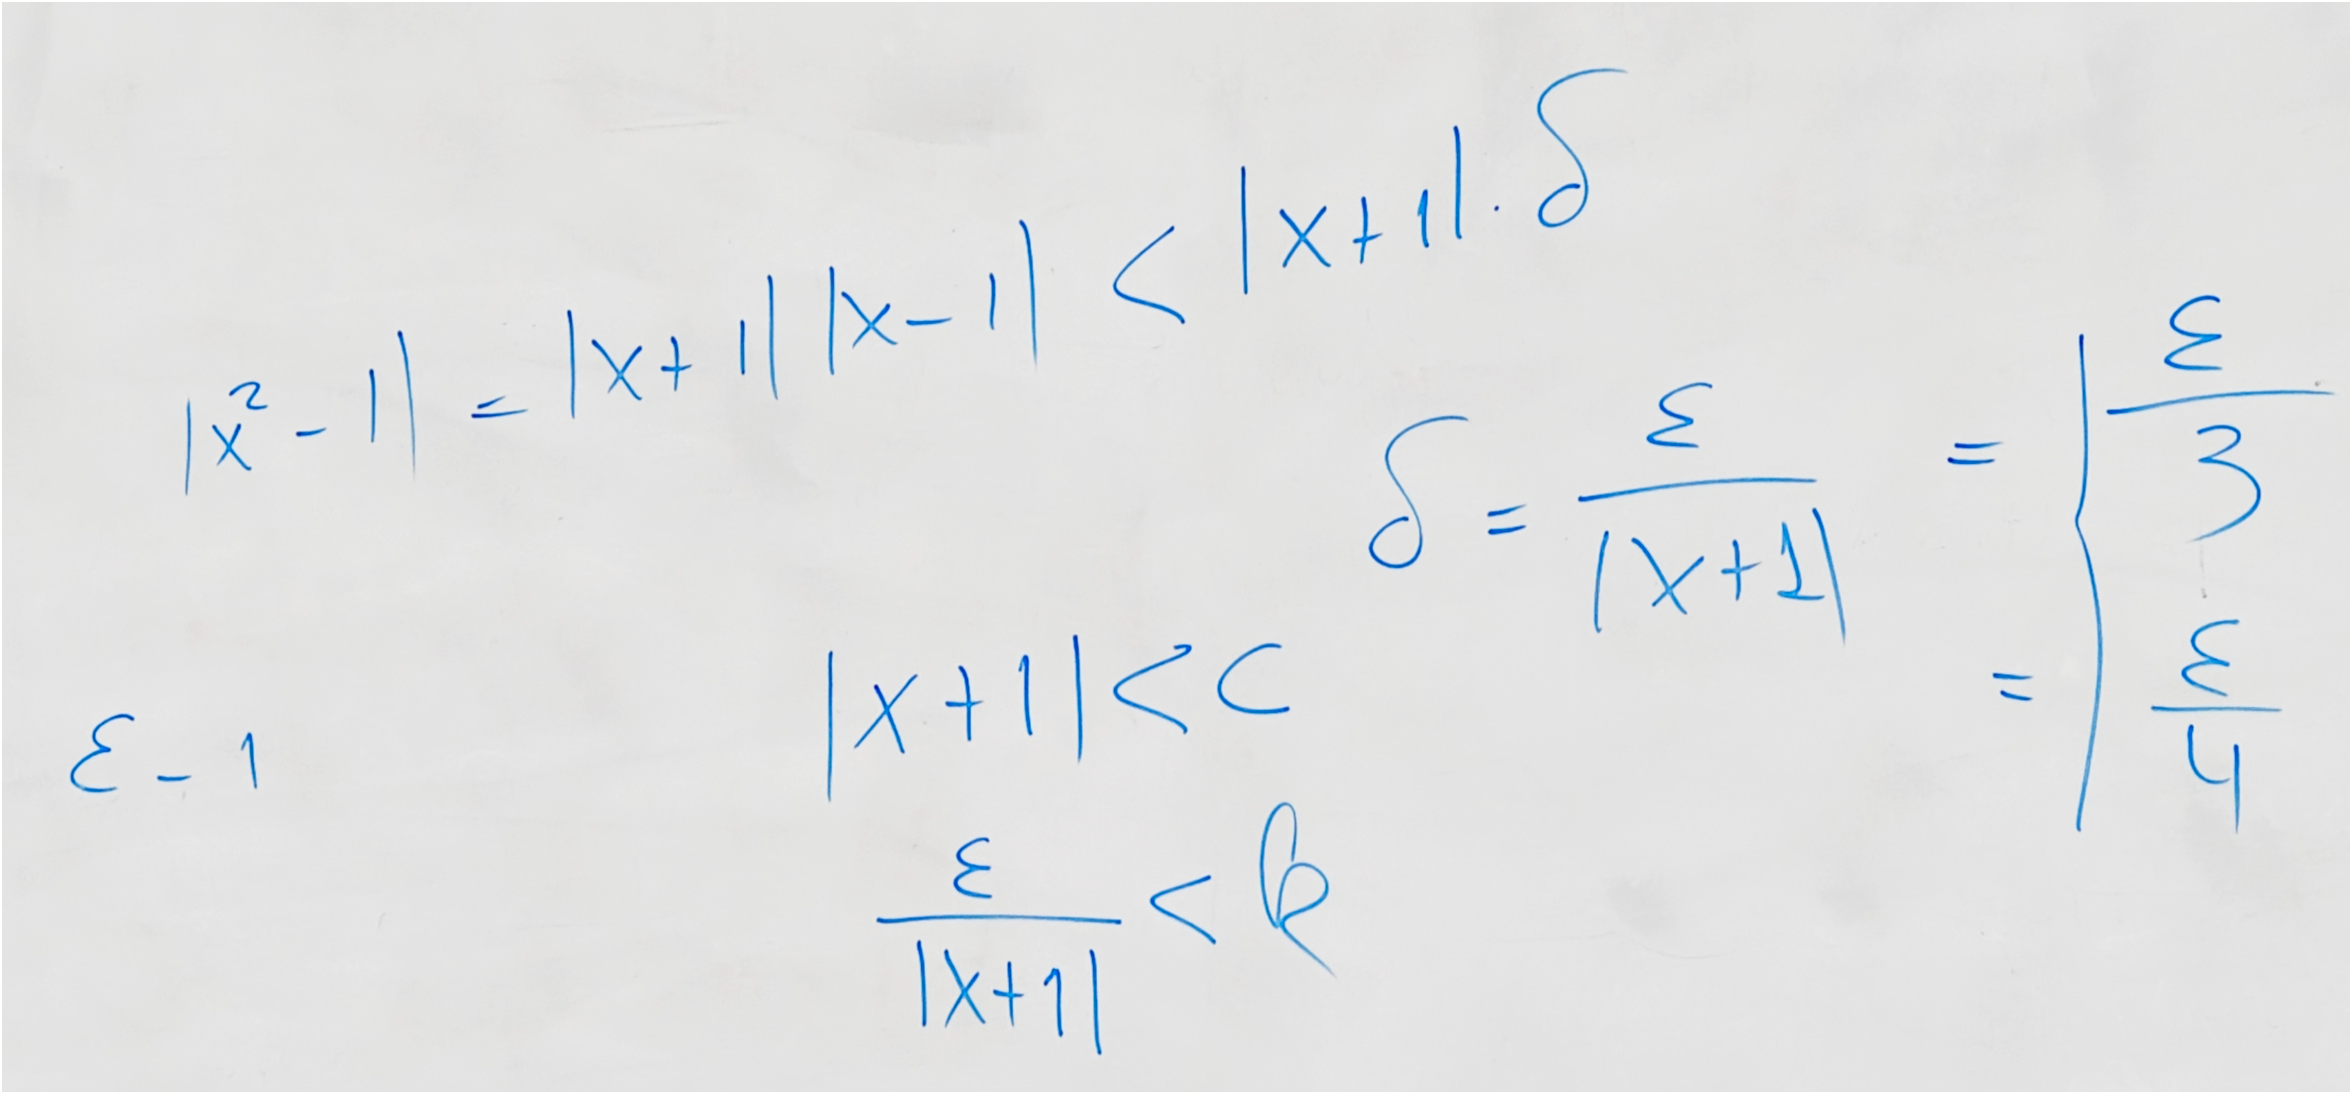 |x² - 1| = |x + 1| |x - 1| < |x + 1| · δ
δ = ε / |x + 1| = | ε / 3
= | ε / 4
ε - 1
|x + 1| < c
ε / |x + 1| < k